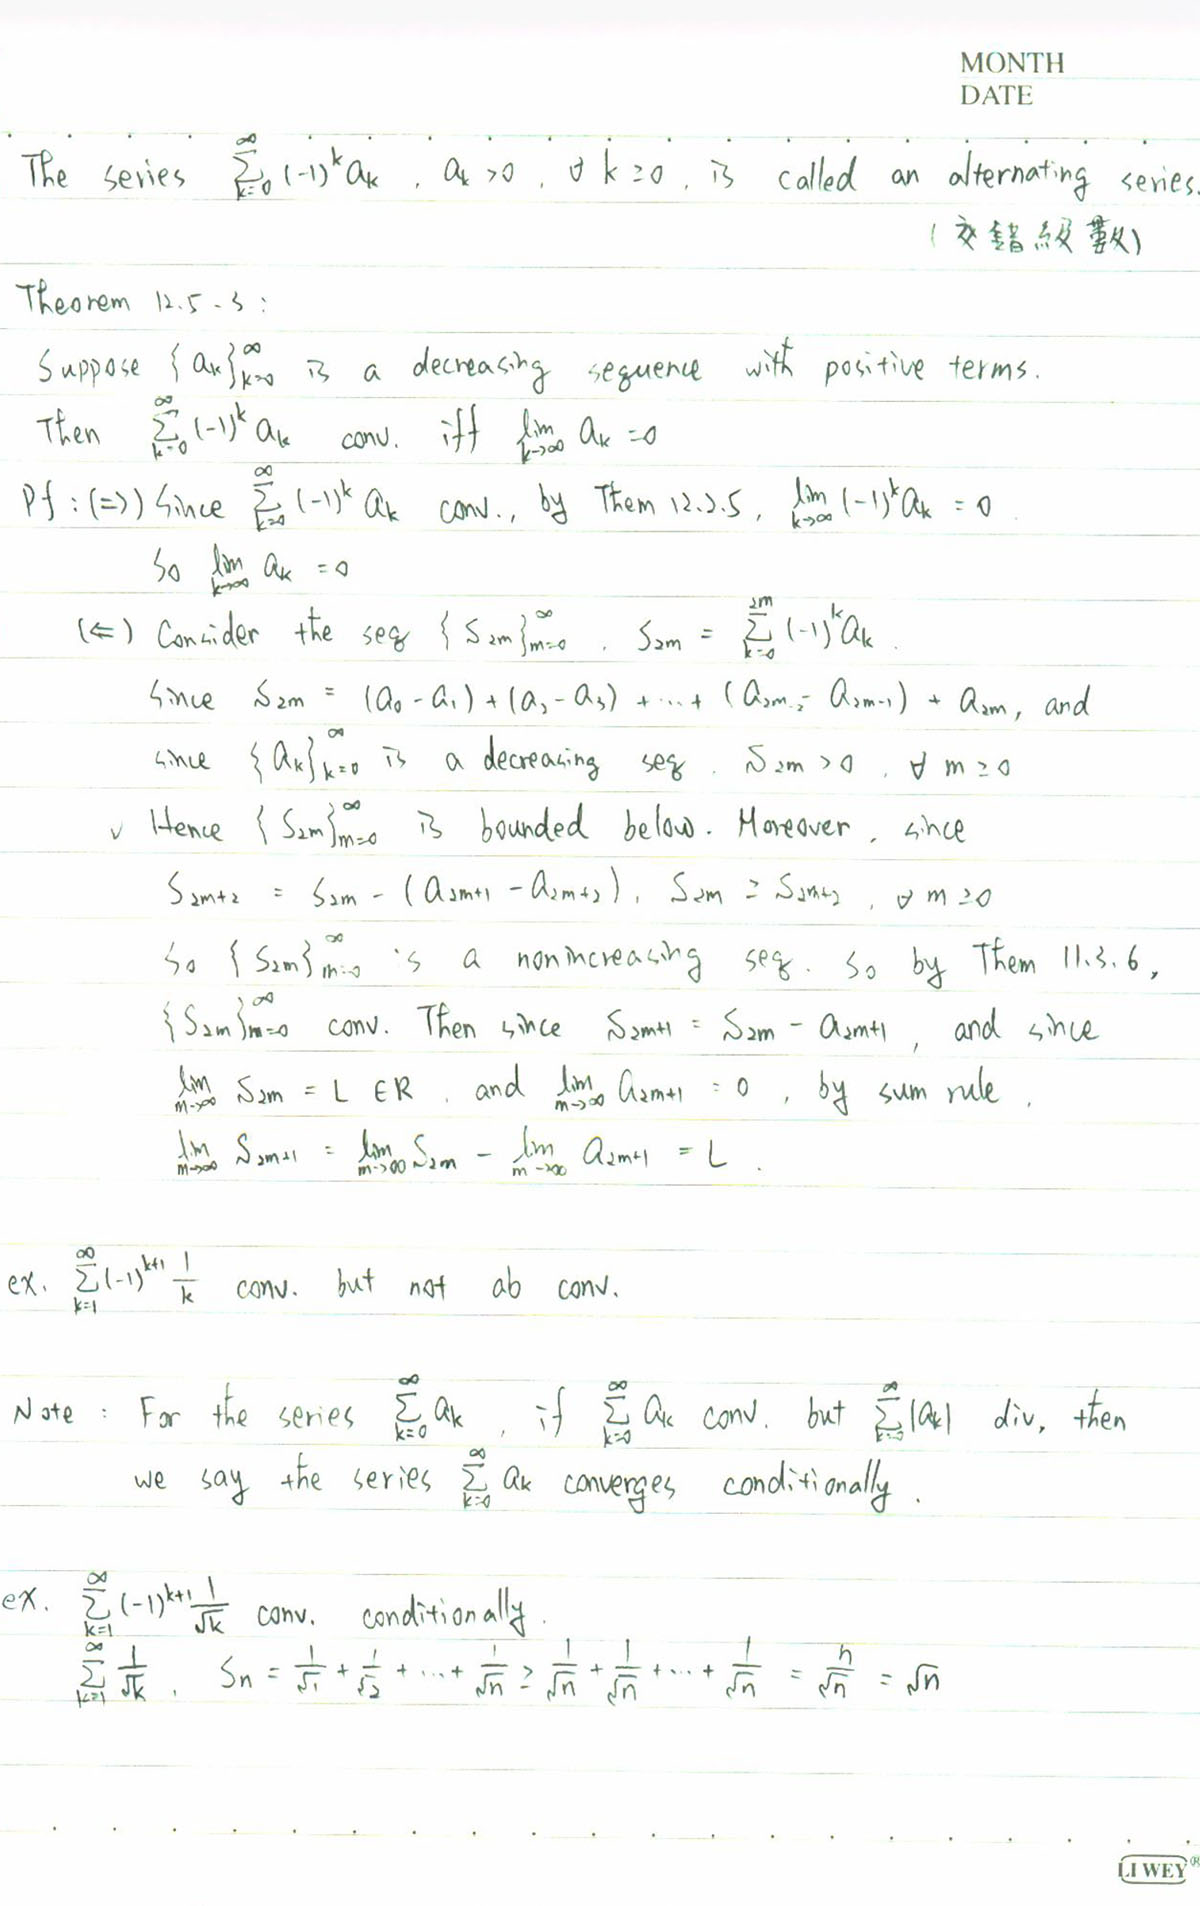 MONTH
DATE
The series $\sum_{k=0}^{\infty} (-1)^k a_k$, $a_k > 0$, $\forall k \geq 0$, is called an alternating series.
(交錯級數)
Theorem 12.5.3:
Suppose $\{a_k\}_{k=0}^{\infty}$ is a decreasing sequence with positive terms.
Then $\sum_{k=0}^{\infty} (-1)^k a_k$ conv. iff $\lim_{k \to \infty} a_k = 0$
Pf: (⇒) Since $\sum_{k=0}^{\infty} (-1)^k a_k$ conv., by Them 12.2.5, $\lim_{k \to \infty} (-1)^k a_k = 0$.
So $\lim_{k \to \infty} a_k = 0$
(⇐) Consider the seq $\{S_{2m}\}_{m=0}^{\infty}$, $S_{2m} = \sum_{k=0}^{2m} (-1)^k a_k$.
Since $S_{2m} = (a_0 - a_1) + (a_2 - a_3) + \cdots + (a_{2m-2} - a_{2m-1}) + a_{2m}$, and
since $\{a_k\}_{k=0}^{\infty}$ is a decreasing seq. $S_{2m} > 0$, $\forall m \geq 0$
✓ Hence $\{S_{2m}\}_{m=0}^{\infty}$ is bounded below. Moreover, since
$S_{2m+2} = S_{2m} - (a_{2m+1} - a_{2m+2})$, $S_{2m} \geq S_{2m+2}$, $\forall m \geq 0$
So $\{S_{2m}\}_{m=0}^{\infty}$ is a nonincreasing seq. So by Them 11.3.6,
$\{S_{2m}\}_{m=0}^{\infty}$ conv. Then since $S_{2m+1} = S_{2m} - a_{2m+1}$, and since
$\lim_{m \to \infty} S_{2m} = L \in R$, and $\lim_{m \to \infty} a_{2m+1} = 0$, by sum rule,
$\lim_{m \to \infty} S_{2m+1} = \lim_{m \to \infty} S_{2m} - \lim_{m \to \infty} a_{2m+1} = L$.
ex. $\sum_{k=1}^{\infty} (-1)^{k+1} \frac{1}{k}$ conv. but not ab conv.
Note: For the series $\sum_{k=0}^{\infty} a_k$, if $\sum_{k=0}^{\infty} a_k$ conv. but $\sum_{k=0}^{\infty} |a_k|$ div, then
we say the series $\sum_{k=0}^{\infty} a_k$ converges conditionally.
ex. $\sum_{k=1}^{\infty} (-1)^{k+1} \frac{1}{\sqrt{k}}$ conv. conditionally.
$\sum_{k=1}^{\infty} \frac{1}{\sqrt{k}}$, $S_n = \frac{1}{\sqrt{1}} + \frac{1}{\sqrt{2}} + \cdots + \frac{1}{\sqrt{n}} \geq \frac{1}{\sqrt{n}} + \frac{1}{\sqrt{n}} + \cdots + \frac{1}{\sqrt{n}} = \frac{n}{\sqrt{n}} = \sqrt{n}$
LI WEY®